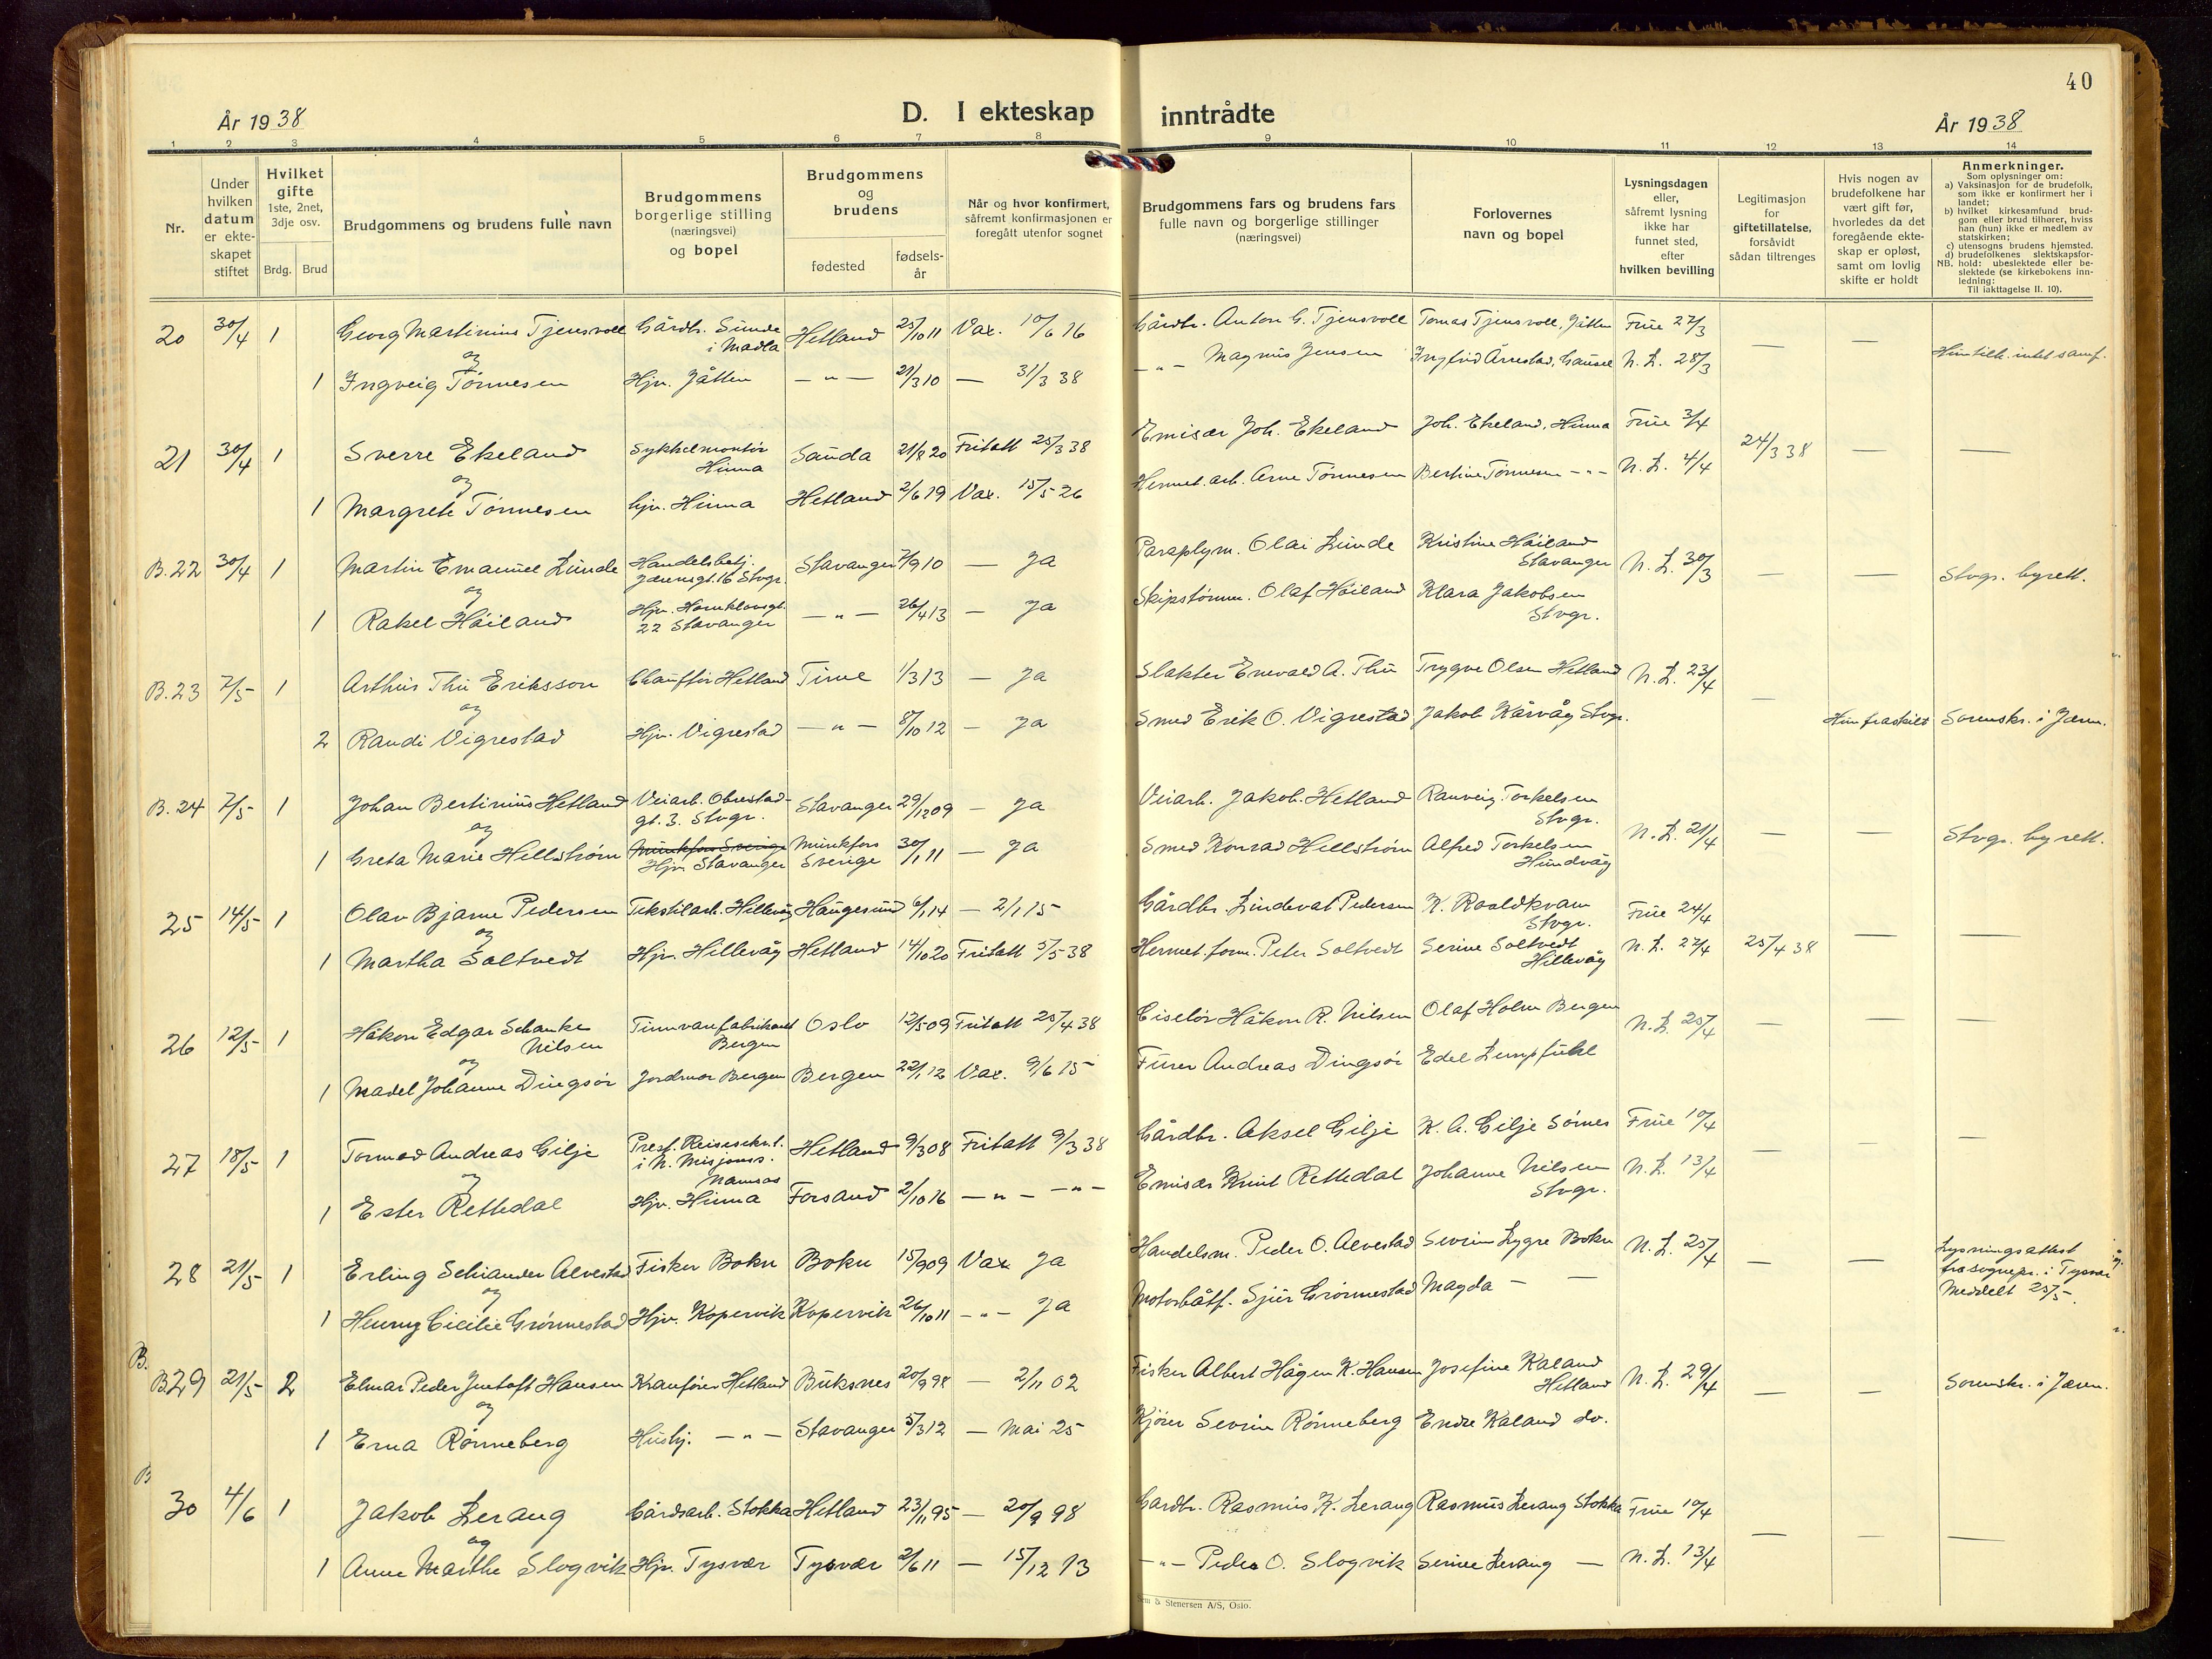 40
År 1938
D. I ekteskap inntrådte
År 1938
1 2 3 4 5 6 7 8 9 10 11 12 13 14
Nr.
Under hvilken datum er ekteskapet stiftet
Hvilket gifte
1ste, 2net, 3dje osv.
Brdg. Brud
Brudgommens og brudens fulle navn
Brudgommens borgerlige stilling (næringsvei) og bopel
Brudgommens og brudens
fødested
fødselsår
Når og hvor konfirmert, såfremt konfirmasjonen er foregått utenfor sognet
Brudgommens fars og brudens fars fulle navn og borgerlige stillinger (næringsvei)
Forlovernes navn og bopel
Lysningsdagen eller, såfremt lysning ikke har funnet sted, efter hvilken bevilling
Legitimasjon for giftetillatelse, forsåvidt sådan tiltrenges
Hvis nogen av brudefolkene har vært gift før, hvorledes da det foregående ekteskap er opløst, samt om lovlig skifte er holdt
Anmerkninger.
Som oplysninger om:
a) Vaksinasjon for de brudefolk, som ikke er konfirmert her i landet;
b) hvilket kirkesamfund brudgom eller brud tilhører, hviss han (hun) ikke er medlem av statskirken;
c) utensogns brudens hjemsted.
d) brudefolkenes slektskapsforhold: ubeslektede eller beslektede (se kirkebokens innledning:
NB.
Til iakttagelse II. 10).
20 30/4 1 Georg Martinius Tjensvoll Gårdbr. Sunde i Madla Hetland 25/10 11 Vax. 10/6 16 Gårdbr. Anton G. Tjensvoll Tomas Tjensvoll, Jåtten Frue 27/3 — —
og
1 Ingveig Tønnesen Hjv. Jåtten —"— 21/3 10 — 31/3 38 —"— Magnus Jensen Ingfrid Årrestad, Gausel N. L. 28/3 Hun tilh. intet samf.
21 30/4 1 Sverre Ekeland Sykkelmontør Hinna Sauda 21/8 20 Fritatt 25/3 38 Emisær Joh. Ekeland Joh. Ekeland, Hinna Frue 3/4 24/3 38 — —
og
1 Margrete Tønnesen hjv. Hinna Hetland 2/6 19 Vax. 15/5 26 Hermet. arb. Arne Tønnesen Bertine Tønnesen —"— N. L. 4/4
B. 22 30/4 1 Martin Emanuel Lunde Handelsbetj. Jærensgt. 16 Stvgr. Stavanger 7/9 10 — Ja Paraplym. Olai Lunde Kristine Høiland Stavanger N. L. 30/3 — — Stvgr. byrett.
og
1 Rakel Høiland Hjv. Hornklovsgt. 22 Stavanger —"— 26/4 13 — Ja Skipstømm. Olaf Høiland Klara Jakobsen Stvgr.
B. 23 7/5 1 Arthur Thu Eriksson Chauffør Hetland Time 1/3 13 — Ja Slakter Enevald A. Thu Trygve Olsen Hetland N. L. 23/4 —
og
2 Randi Vigrestad Hjv. Vigrestad —"— 8/10 12 — Ja Smed Erik O. Vigrestad Jakob Kårvåg Stvgr. Hun fraskilt Sorenskr. i Jæren.
B. 24 7/5 1 Johan Bertinius Hetland Veiarb. Obrestadgt. 3. Stvgr. Stavanger 29/12 09 — Ja Veiarb. Jakob. Hetland Ranveig Torkelsen Stvgr. N. L. 21/4 — — Stvgr. byrett.
og
1 Greta Marie Hellstrøm Munkfors Sverige Hjv. Stavanger Munkfors Sverige 30/1 11 — Ja Smed Konrad Hellstrøm Alfred Torkelsen Hundvåg
25 14/5 1 Olav Bjarne Pedersen Tekstilarb. Hillevåg Haugesund 6/1 14 — 2/1 15 Gårdbr. Lindeval Pedersen K. Roaldkvam Stvgr. Frue 24/4
og
1 Martha Soltvedt Hjv. Hillevåg Hetland 14/10 20 Fritatt 5/5 38 Hermet. form. Peter Soltvedt Serine Soltvedt Hillevåg N. L. 27/4 25/4 38 — —
26 12/5 1 Håkon Edgar Schanke Nilsen Tinnvarefabrikant Bergen Oslo 12/5 09 Fritatt 25/4 38 Ciselør Håkon R. Nilsen Olaf Holm Bergen N. L. 25/4 — — —
og
1 Madel Johanne Dingsør Jordmor Bergen Bergen 22/1 12 Vax. 9/6 15 Furer Andreas Dingsør Edel Lempfuhl
27 18/5 1 Tormod Andreas Gilje Prest. Reisesekret. i N. Misjonss. Namsos Hetland 9/3 08 Fritatt 9/3 38 Gårdbr. Aksel Gilje K. A. Gilje Sømes Frue 10/4 — — —
og
1 Ester Rettedal Hjv. Hinna Forsand 2/10 16 —"— —"— Emisær Knut Rettedal Johanne Nilsen Stvgr. N. L. 13/4
28 21/5 1 Erling Schiander Alvestad Fisker Bokn Bokn 15/9 09 Vax Ja Handelsm. Peder O. Alvestad Sevrin Lygre Bokn N. L. 25/4 — — Lysningsattest fra sognepr. i Tysvær Meddelt 25/5.
og
1 Henny Cicilie Grønnestad Hjv. Kopervik Kopervik 26/10 11 —"— Ja Motorbåtf. Sjur Grønnestad Magda — —
B.
B. 29 21/5 2 Elmar Peder Justoft Hansen Kranfører Hetland Buksnes 20/9 98 — 2/11 02 Fisker Albert Hågen K. Hansen Josefine Kaland Hetland N. L. 29/4 — — Sorenskr. i Jæren.
og
1 Erna Rønneberg Hushj. —"— Stavanger 5/3 12 — Mai 25 Kjører Sevrin Rønneberg Endre Kaland do.
B
30 4/6 1 Jakob Lerang Gårdsarb. Stokka Hetland 23/11 95 — 20/9 98 Gardbr. Rasmus K. Lerang Rasmus Lerang Stokka Frue 10/4 — — —
og
1 Anne Marthe Slogvik Hjv. Tysvær Tysvær 2/6 11 — 15/12 13 —"— Peder O. Slogvik Serine Lerang — N. L. 13/4
Sem & Stenersen A/S, Oslo.